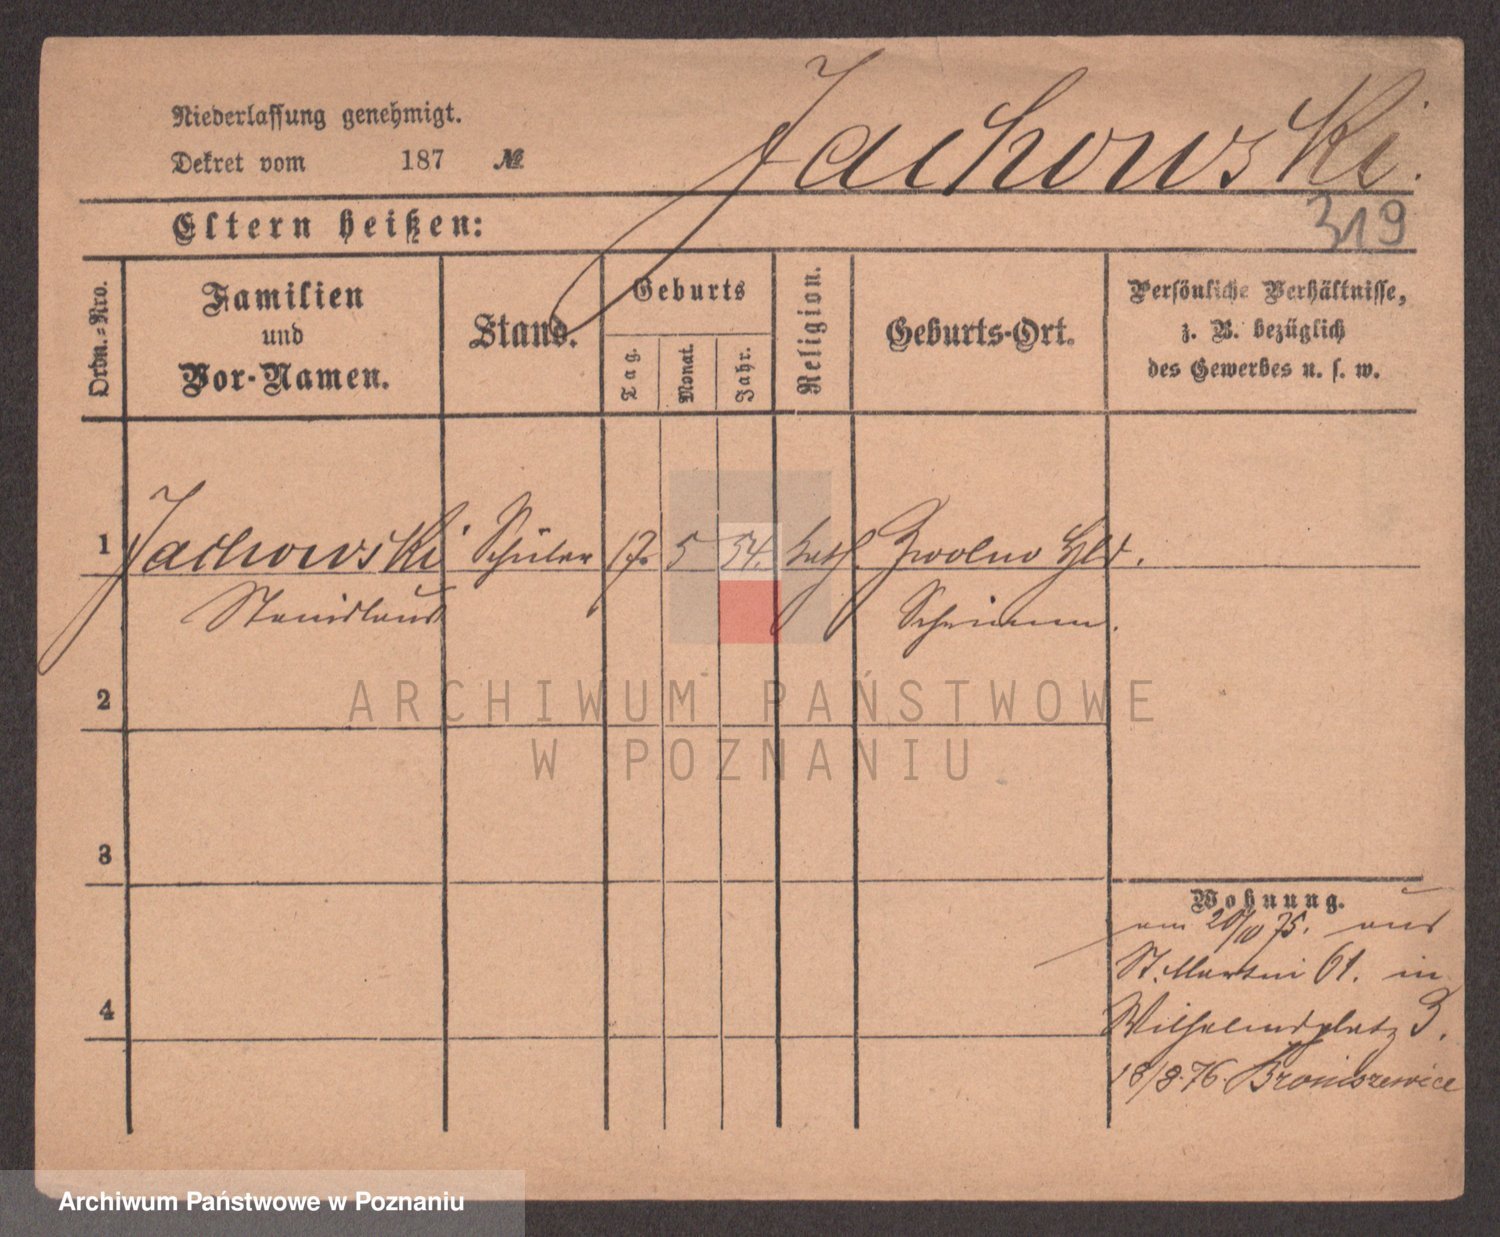 Jachowski.
Niederlassung genehmigt.
Dekret vom 187 №
319
Eltern heißen:
Ordn.=Nro.
Familien
und
Vor-Namen.
Stand.
Geburts
Tag.
Monat.
Jahr.
Religion.
Geburts-Ort.
Persönliche Verhältnisse,
z. B. bezüglich
des Gewerbes u. s. w.
1 Jachowski Schüler 17. 5 54. kath. Zwolno Hld.
Stanislaus Schrimm.
2
3
4
Wohnung.
am 20/10 75. aus
St. Martin 61. in
Wilhelmsplatz 3.
18/8.76. Broniszewice
ARCHIWUM PAŃSTWOWE
W POZNANIU
Archiwum Państwowe w Poznaniu